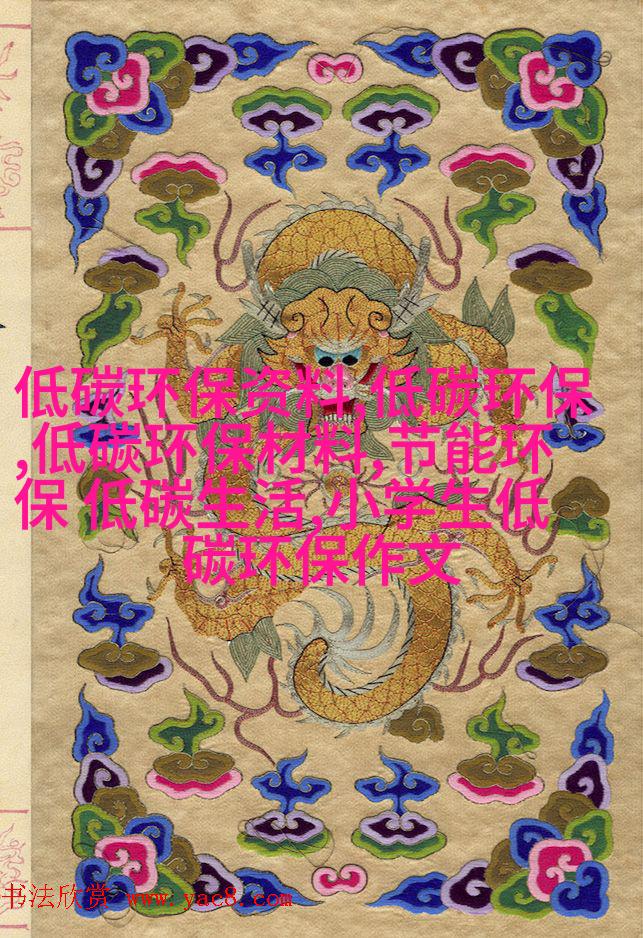 低碳环保资料,低碳环保
,低碳环保材料,节能环
保 低碳生活,小学生低
碳环保作文
书法欣赏 www.yac8.com